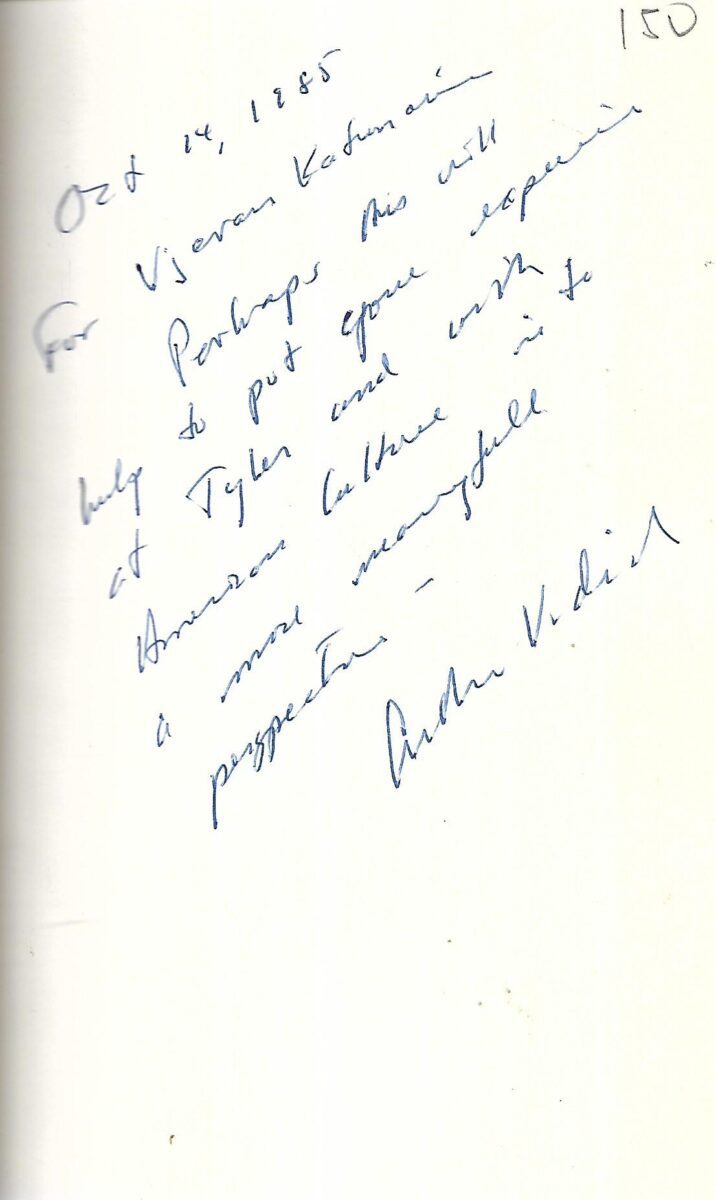 150
Oct 14, 1985
For Vijayan
Perhaps this will
help to put your experience
at Tyler and with
American Culture in to
a more meaningfull
perspective –
Arthur Vidich